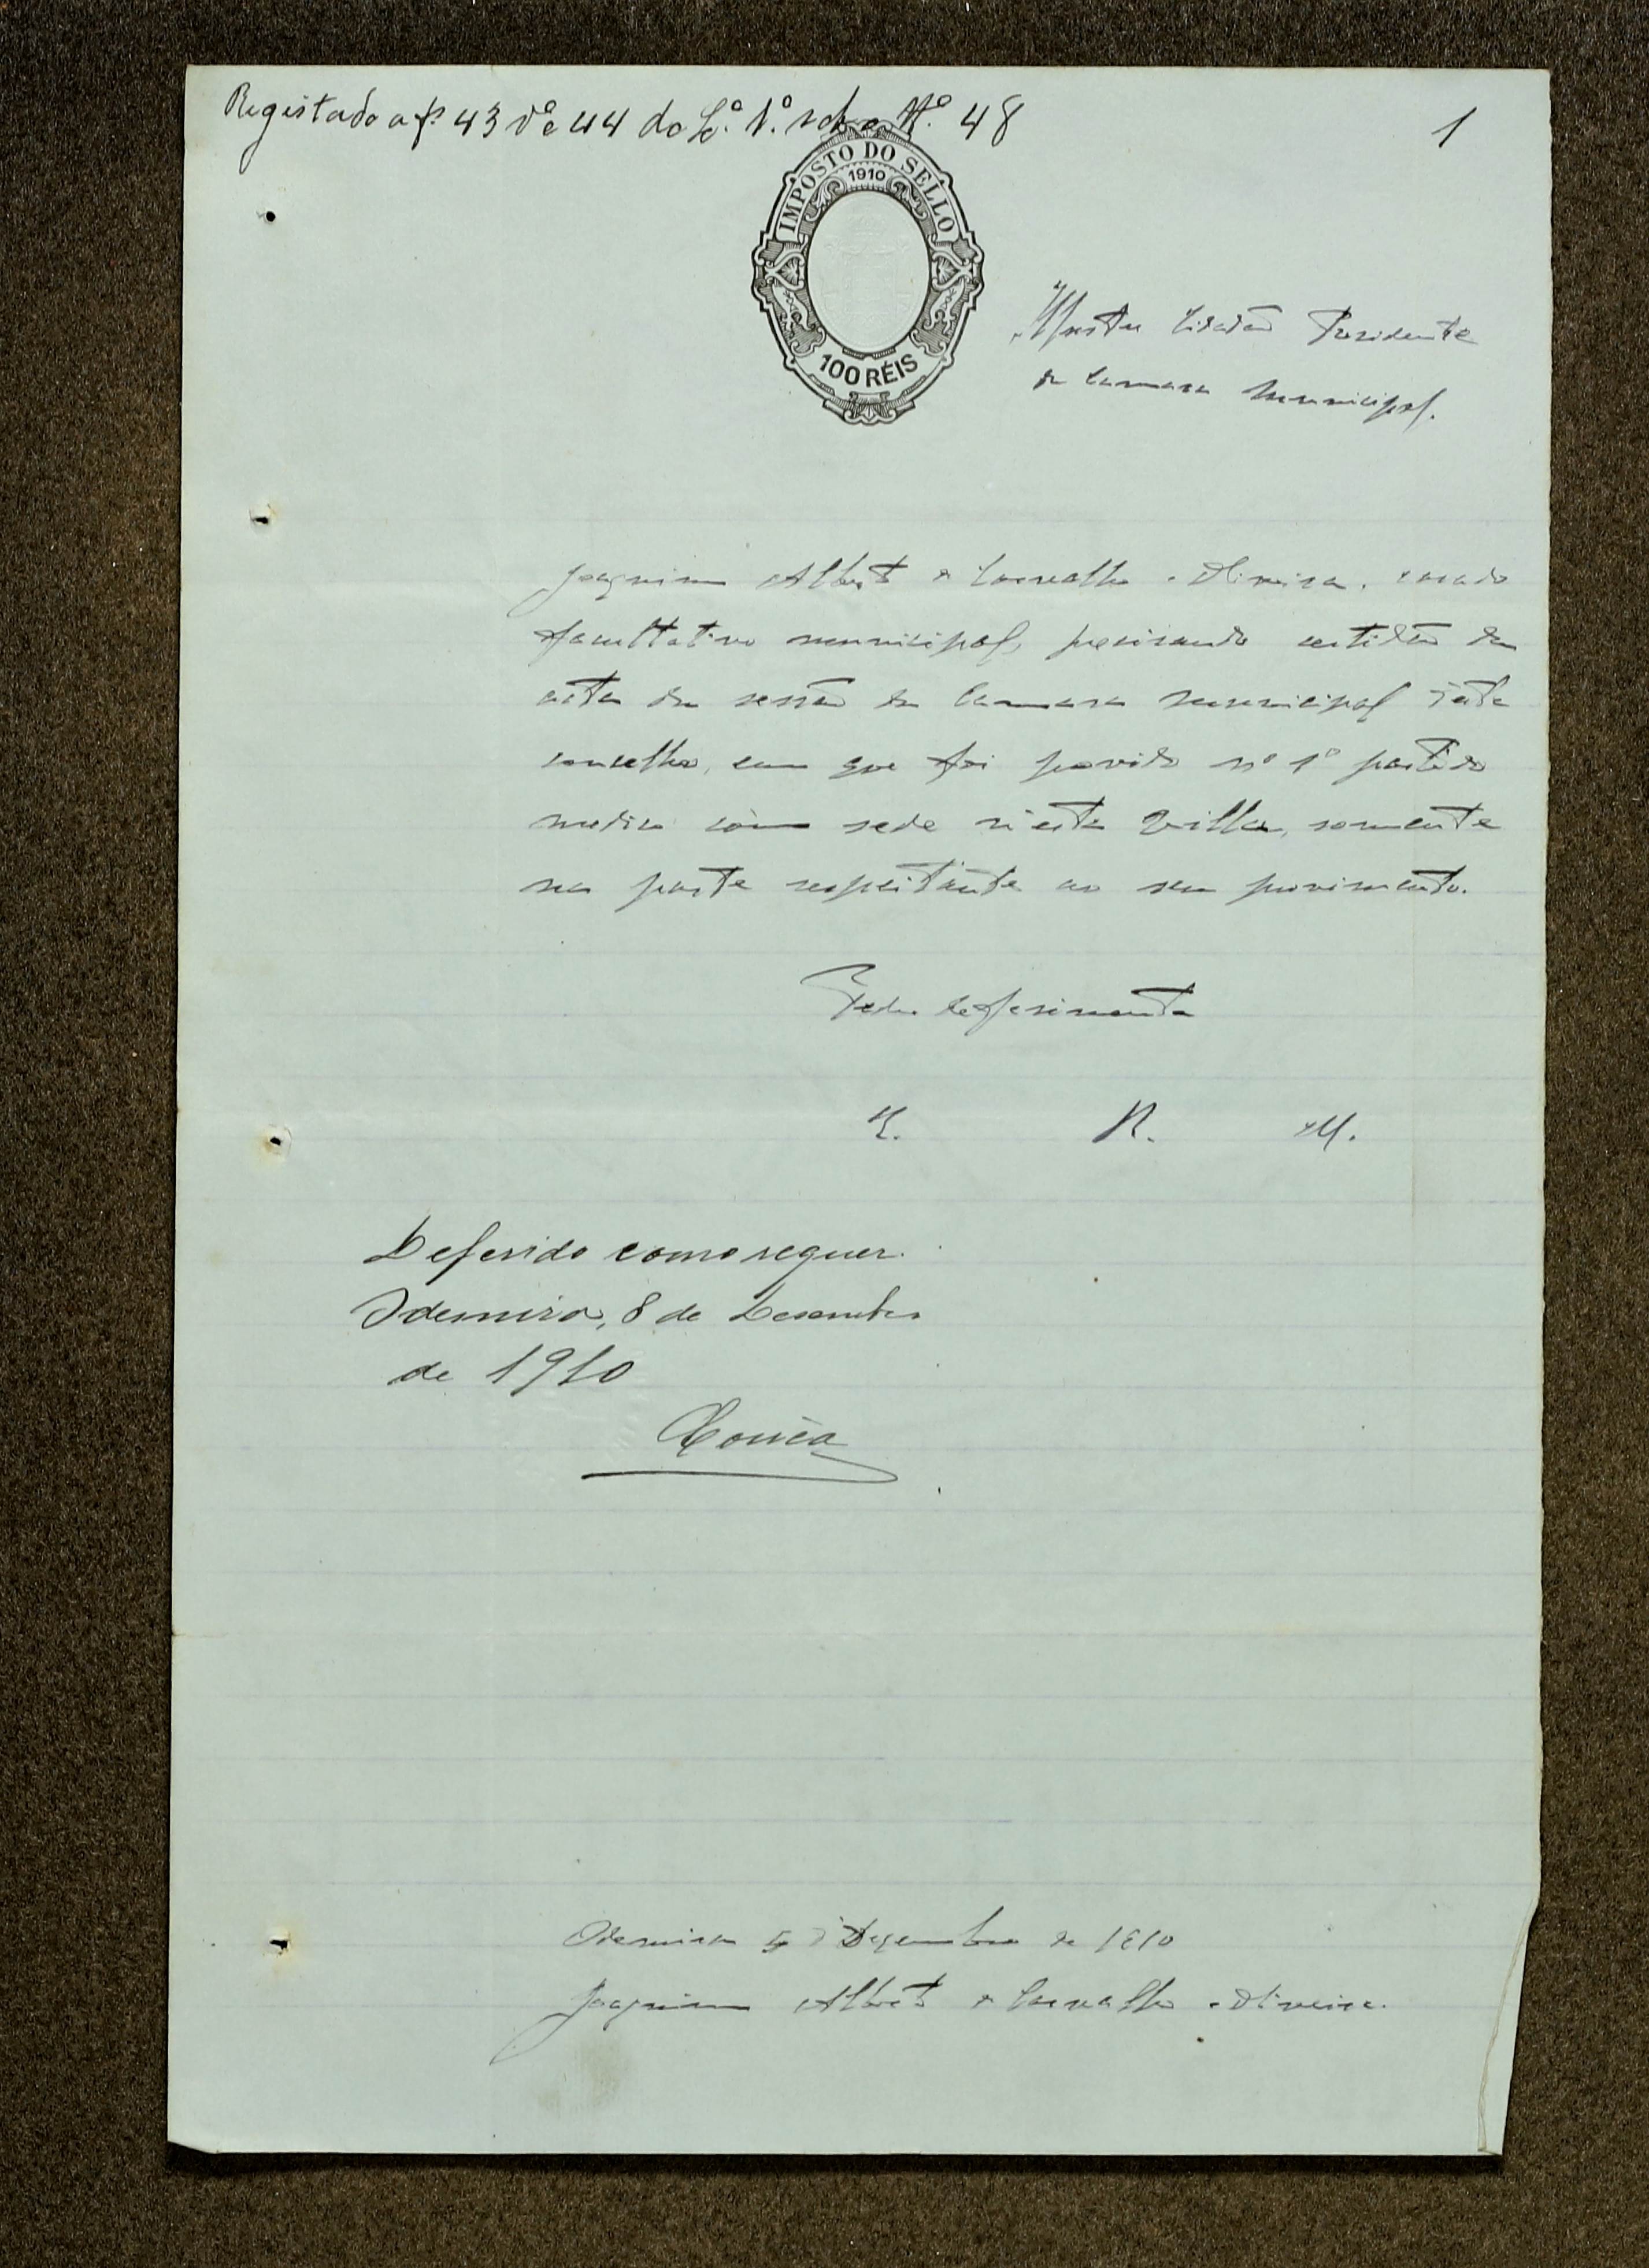 Registado a fs 43 vº e 44 do Lº. 1º. sob o Nº. 48
1
IMPOSTO DO SELLO
1910
100 RÉIS
Illustre Cidadão Presidente
da Camara Municipal.
Joaquim Alberto de Carvalho e Oliveira, casado
facultativo municipal, precisando certidão da
acta da sessão da Camara Municipal d'este
concelho, em que foi provido nº 1º partido
medico com sede n'esta Villa, somente
na parte respeitante ao seu provimento.
Pede deferimento
E. R. M.
Deferido como requer.
Odemira, 8 de Desembro
de 1910
Odemira 5 d'Dezembro de 1910
Joaquim Alberto de Carvalho e Oliveira.